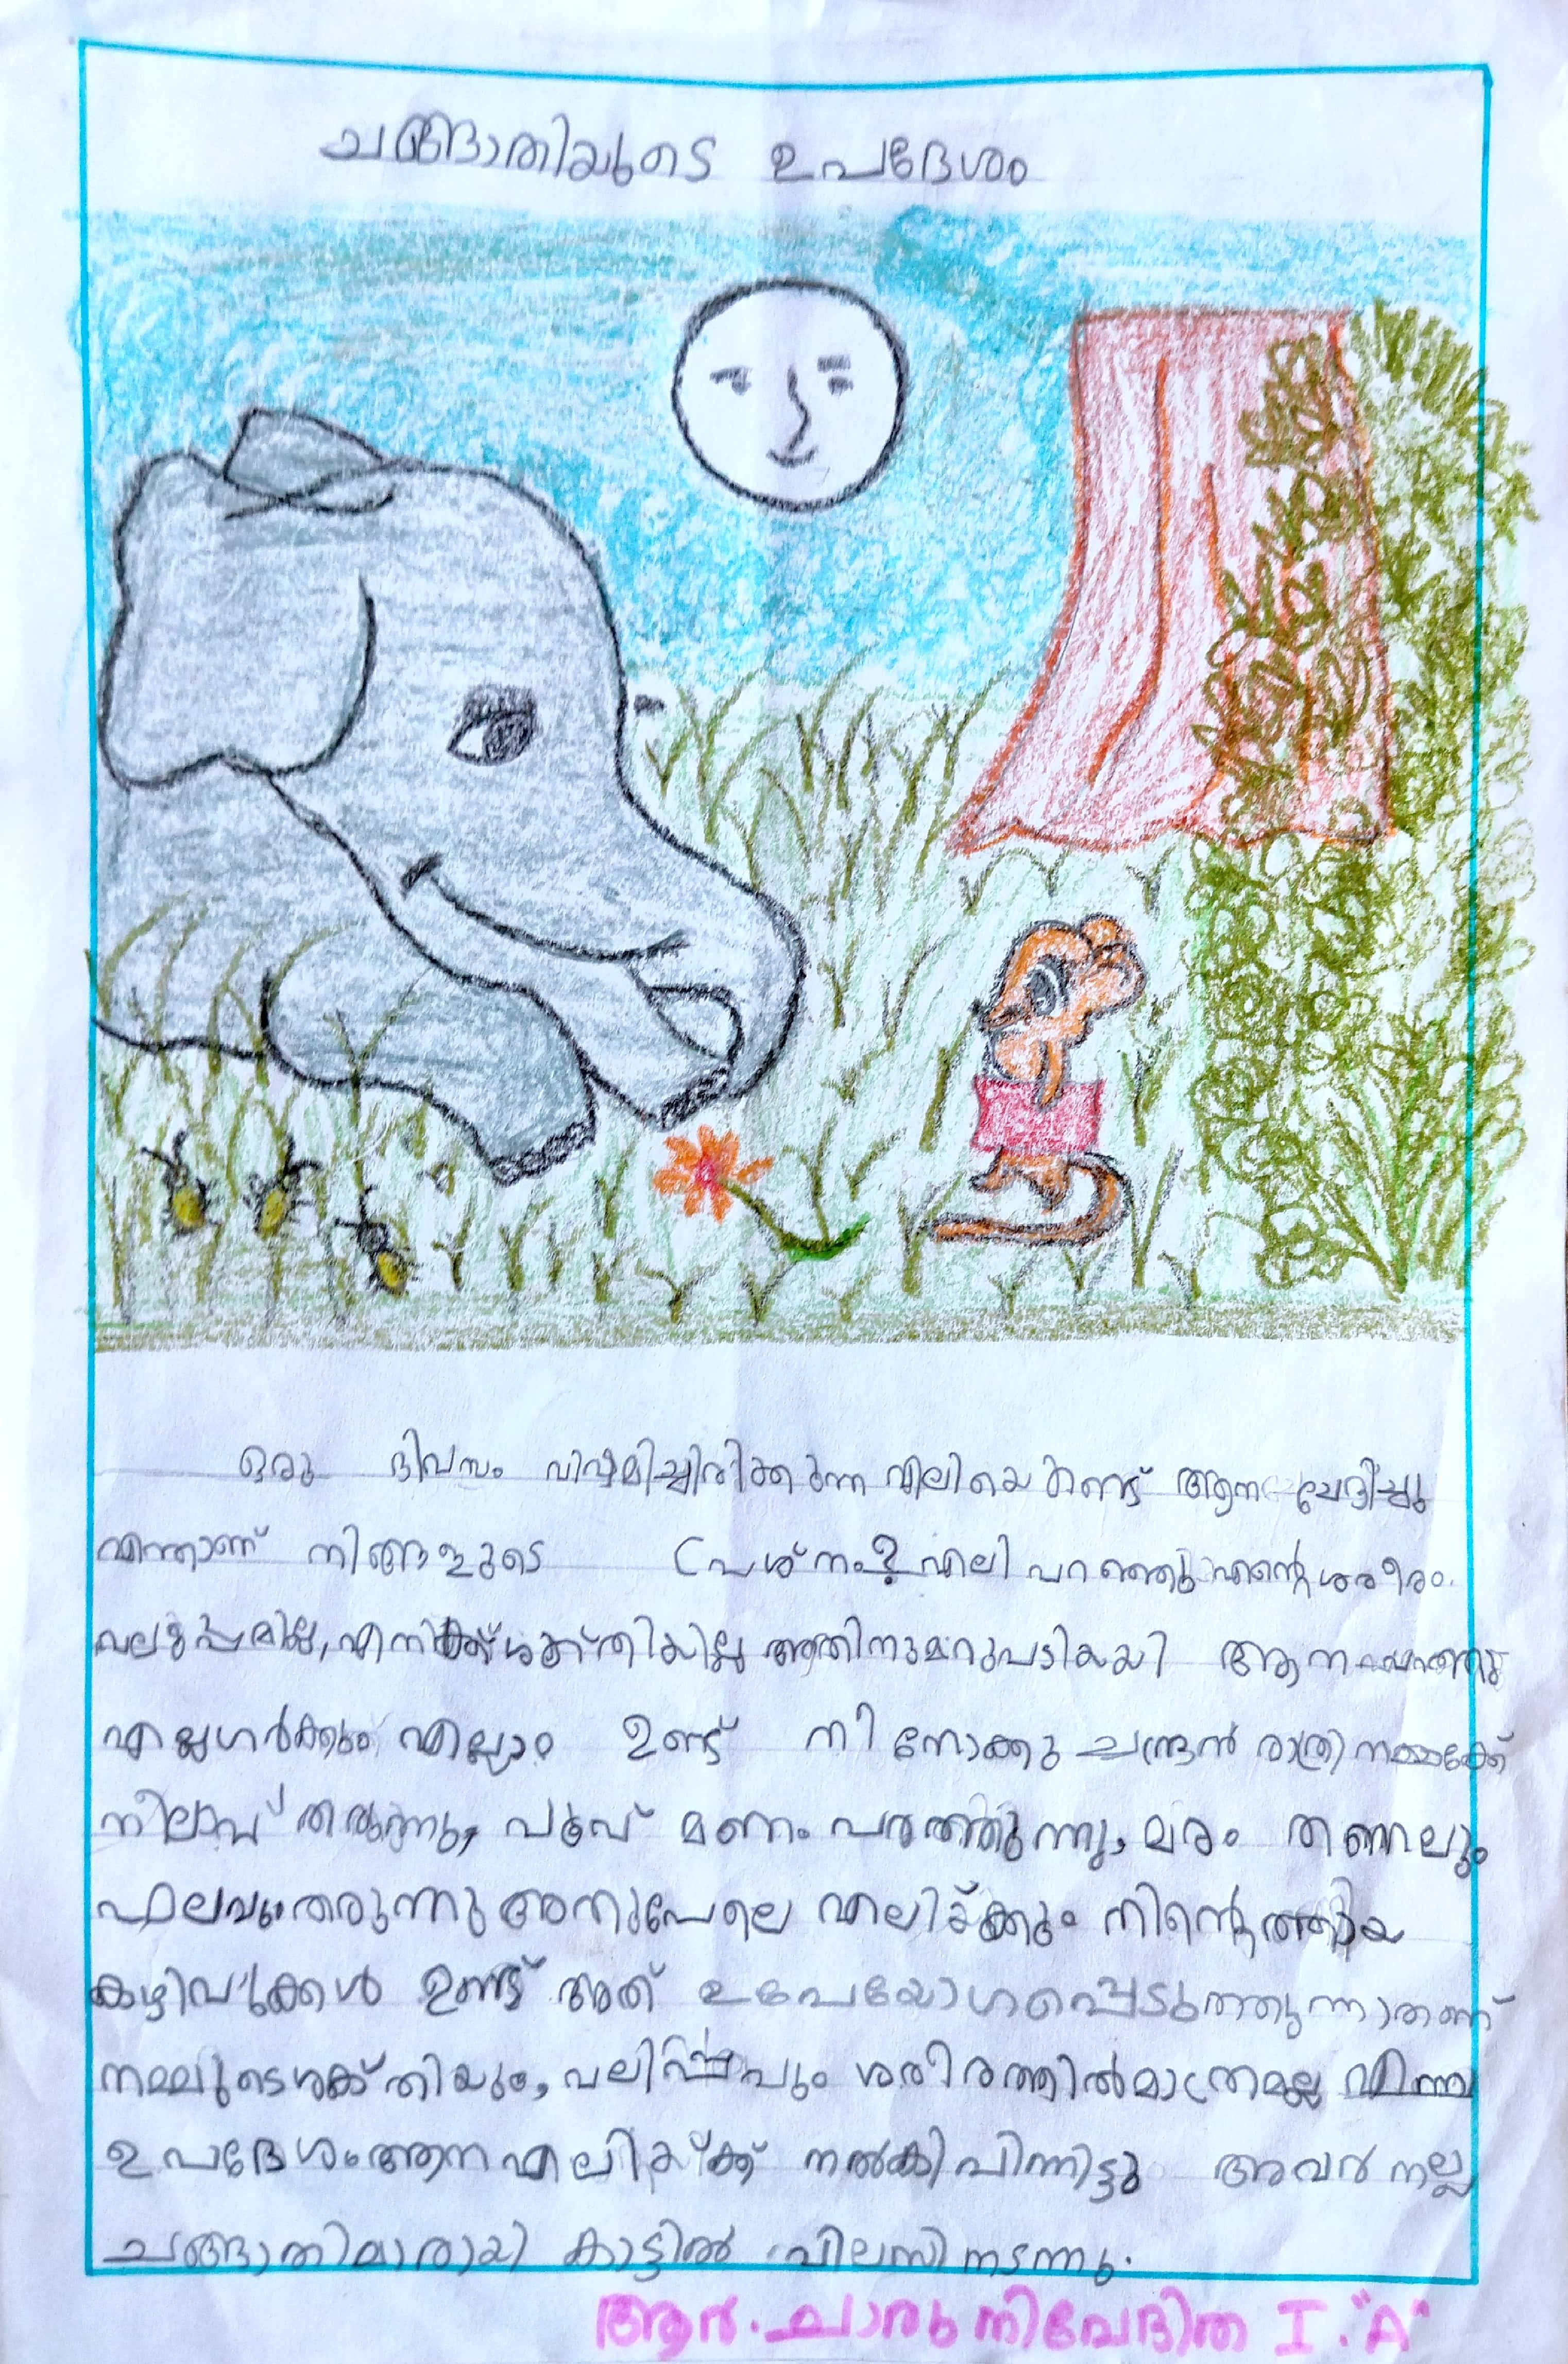 ചങ്ങാതിയുടെ ഉപദേശം
ഒരു ദിവസം വിഷമിച്ചിരിക്കുന്ന എലിയെ കണ്ട് ആന ചോദിച്ചു
എന്താണ് നിങ്ങളുടെ പ്രശ്നം? എലി പറഞ്ഞു എന്റെ ശരീരം
വലുപ്പമില്ല, എനിക്ക് ശക്തിയില്ല അതിനു മറുപടിയയി ആന പറഞ്ഞു
എല്ലാർക്കും എല്ലാം ഉണ്ട് നീ നോക്കു ചന്ദ്രൻ രാത്രി നമ്മക്ക്
നിലാവ് തരുന്നു, പൂവ് മണം പരത്തുന്നു, മരം തണലും
ഫലവും തരുന്നു അതുപേലെ എലിയ്ക്കും നിന്റെതായ
കഴിവുക്കൾ ഉണ്ട് അത് ഉപേയോഗപ്പെടുത്തുന്നാതണ്
നമ്മുടെ ശക്തിയും, വലിപ്പവും ശരീരത്തിൽ മാത്രമല്ല എന്ന
ഉപദേശം ആന എലിയ്ക്ക് നൽകി പിന്നിട്ടു അവർ നല്ല
ചങ്ങാതിമാരായി കാട്ടിൽ വിലസി നടന്നു.
ആർ. ചാരു നിവേദിത I. "A"